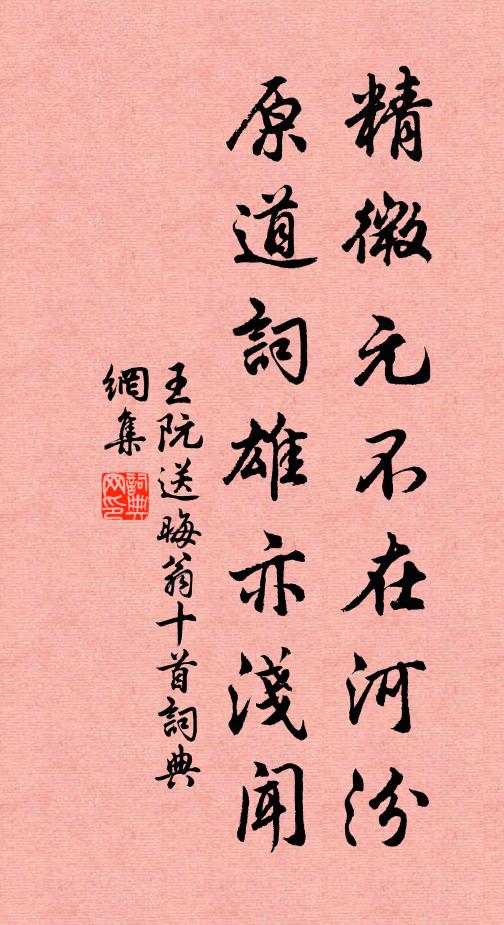 精微元不在河汾
原道詞雄亦淺聞
王阮送晦翁十首詞典
網集
詞典
网印